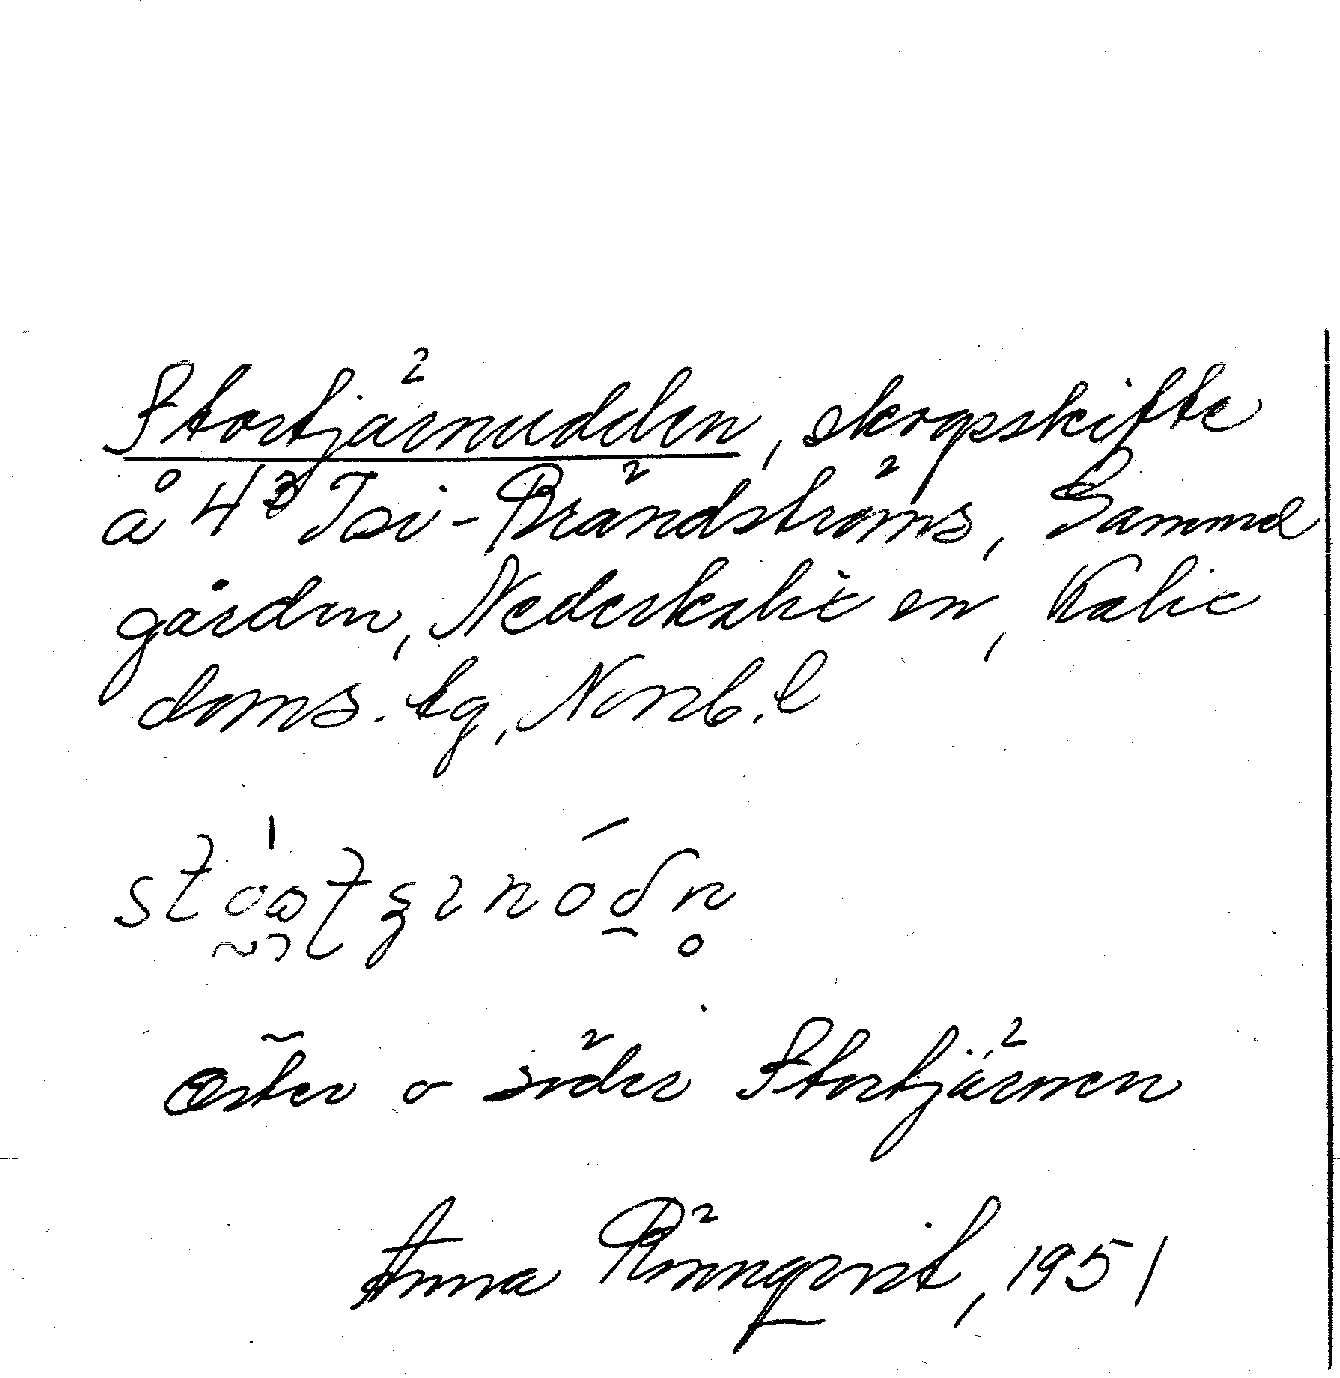 Stortjärnudden, skogsskifte
å 4³ Isi-Brändströms, Gammel
gården, Nederkalix sn, Kalix
doms. tg, Norrb. l
öster o söder Stortjärnen
Anna Rönnqvist, 1951